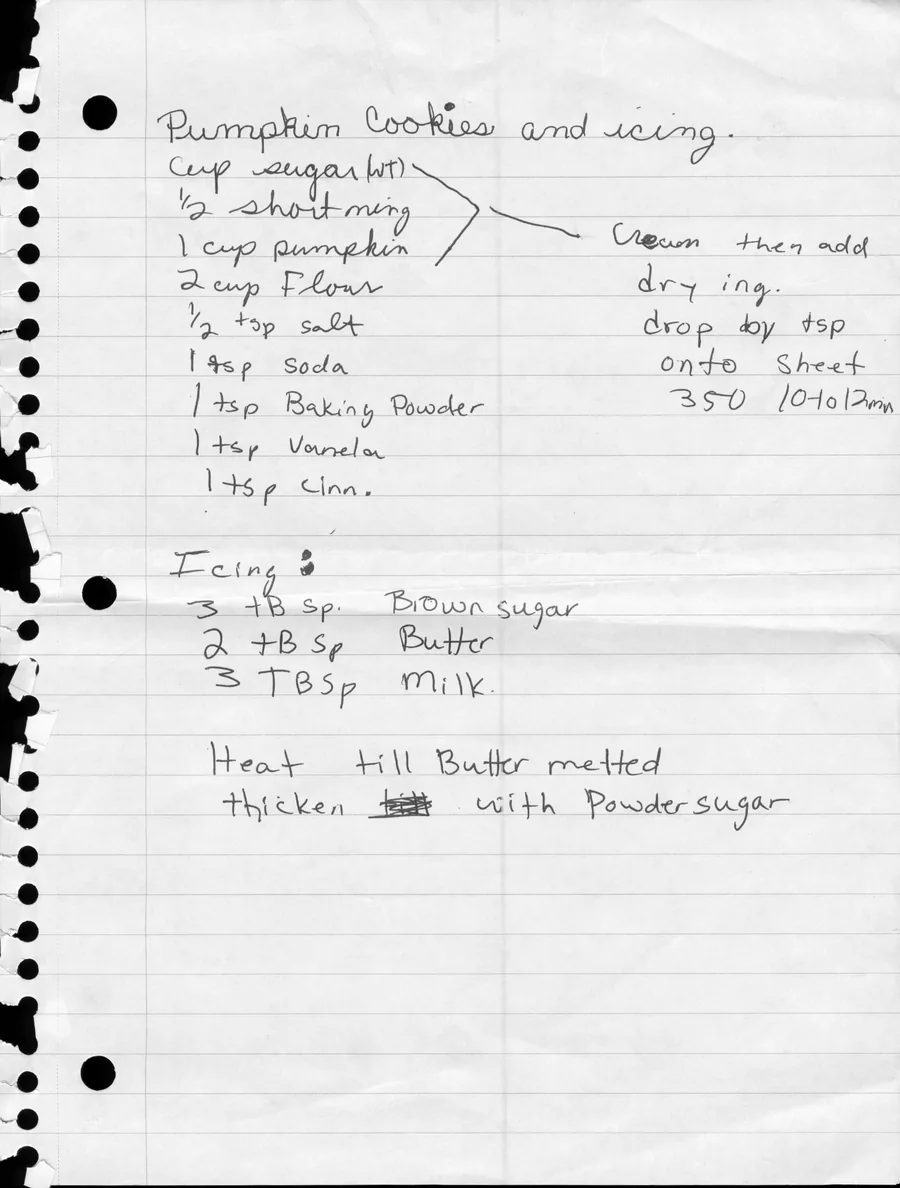 Pumpkin Cookies and icing.
Cup sugar (WT)
1/2 shortning
1 cup pumpkin
2 cup Flour
1/2 tsp salt
1 tsp Soda
1 tsp Baking Powder
1 tsp Vanela
1 tsp Cinn.
Cream then add
dry ing.
drop by tsp
onto Sheet
350 10 to 12 min
Icing:
3 tB Sp. Brown sugar
2 tB Sp Butter
3 TBSp Milk.
Heat till Butter melted
thicken with Powder sugar